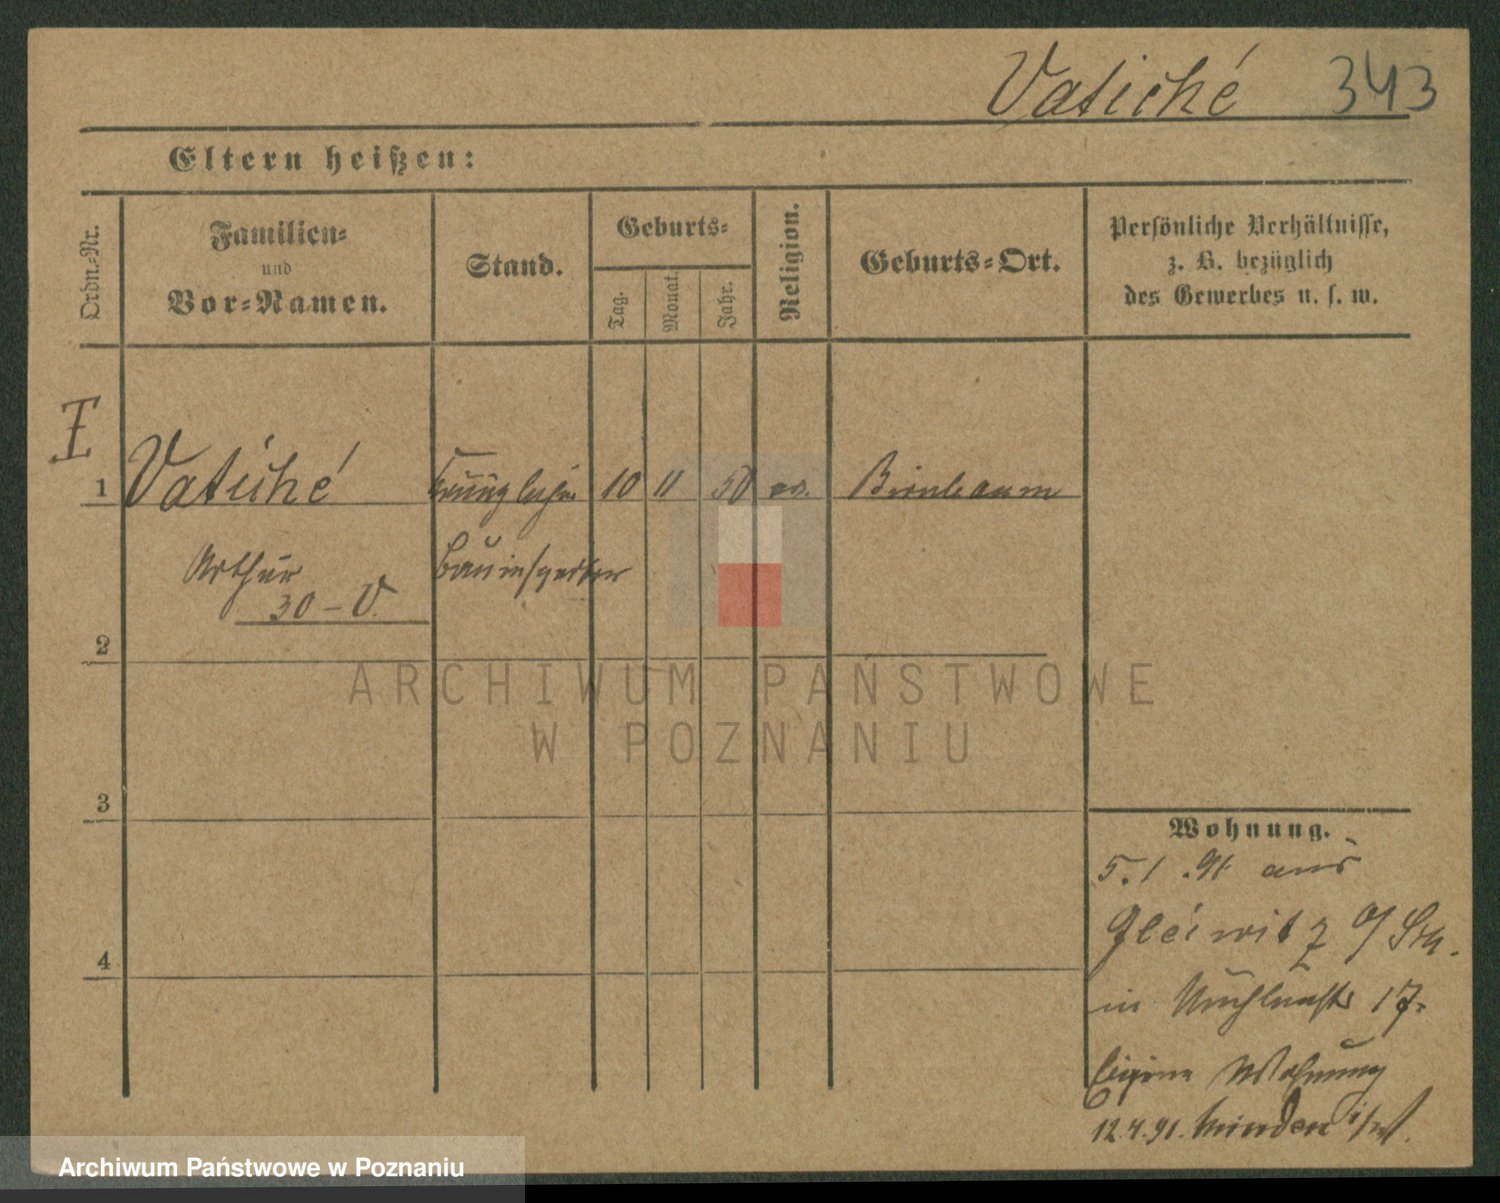 Vatiché 343
Eltern heißen:
Ordn.-Nr.
Familien-
und
Vor-Namen.
Stand.
Geburts-
Tag.
Monat.
Jahr.
Religion.
Geburts-Ort.
Persönliche Verhältnisse,
z. B. bezüglich
des Gewerbes u. s. w.
I
1 Vatiché 10 11 50 ev. Birnbaum
Arthur Bauinspektor
30 - V.
2
3
4
Wohnung.
5.1.91 aus
Gleiwitz O/Sch.
in 17.
Eigene Wohnung
12.4.91. Minden i/W.
ARCHIWUM PAŃSTWOWE
W POZNANIU
Archiwum Państwowe w Poznaniu